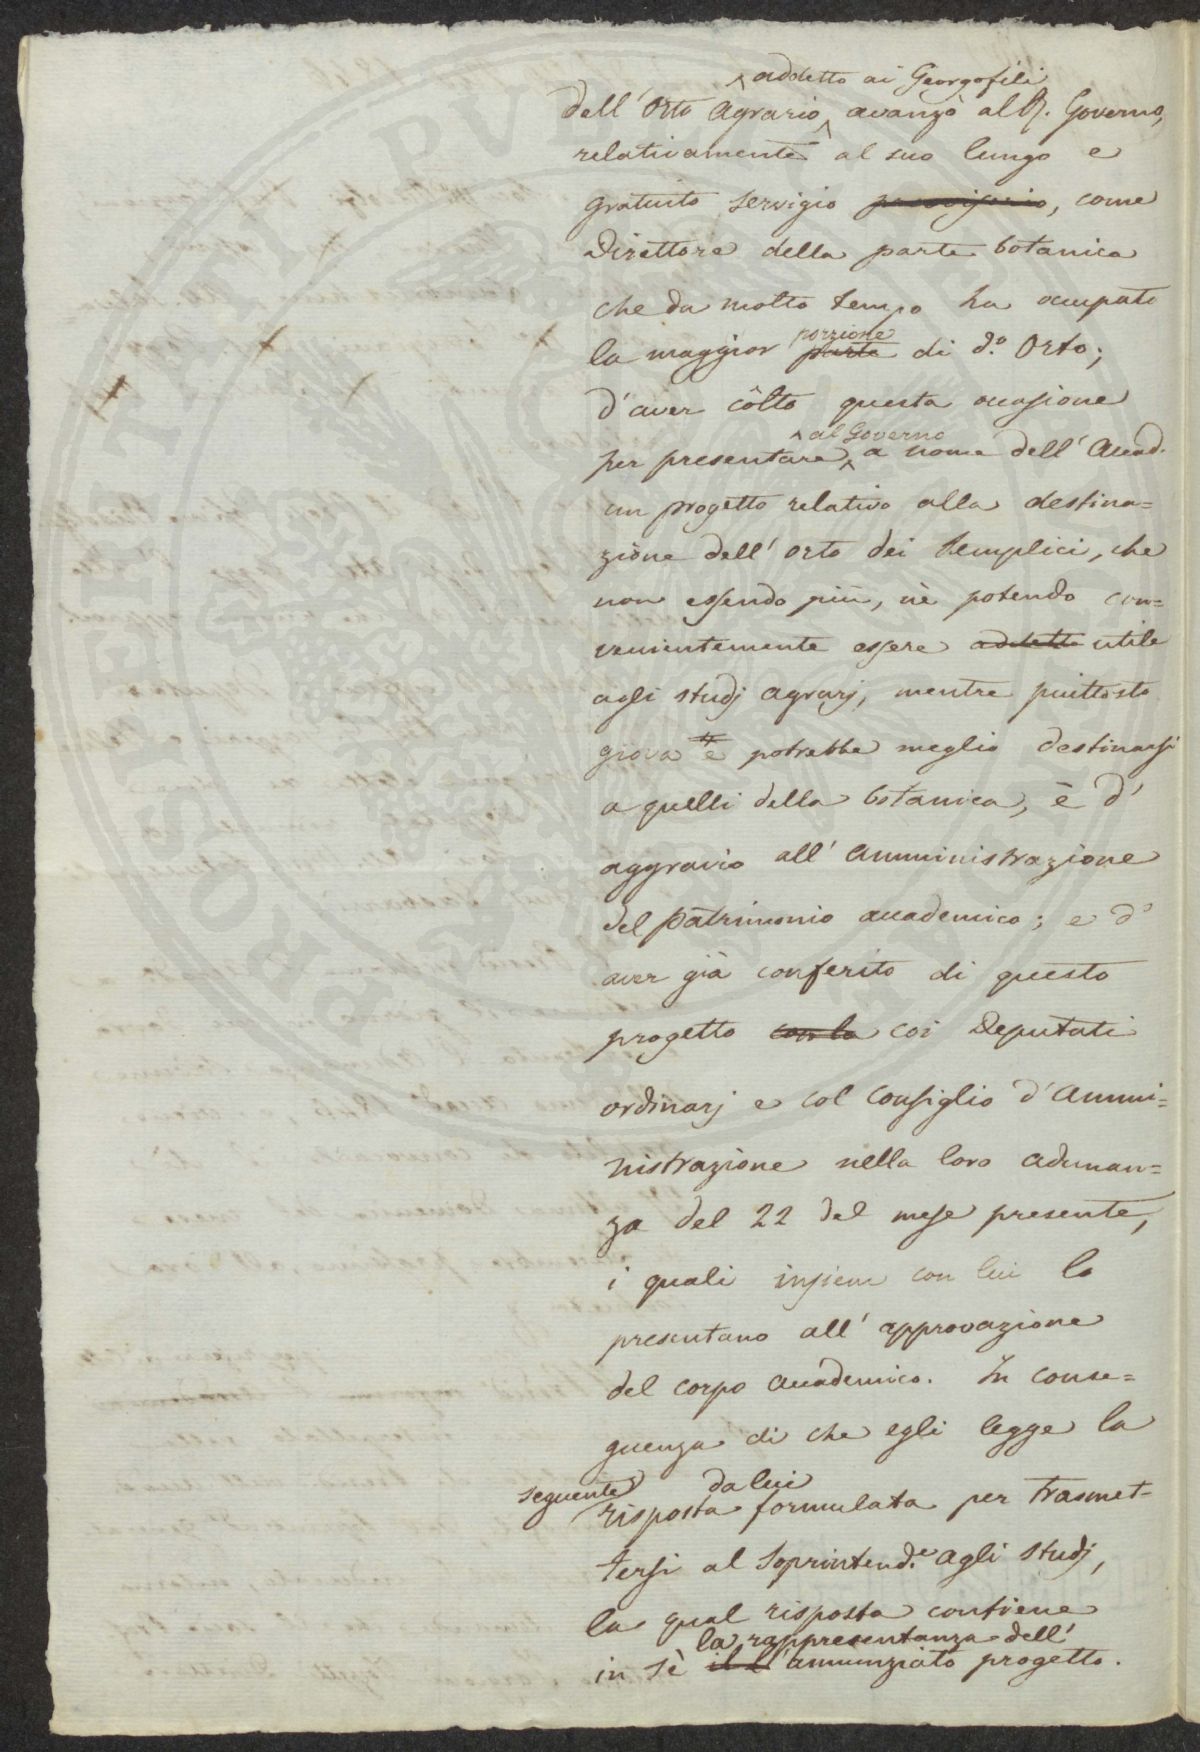 addetto ai Georgofili
dell' Orto Agrario avanzò al R. Governo,
relativamente al suo lungo e
gratuito servigio provvisorio, come
Direttore della parte botanica
che da molto tempo ha occupato
porzione
la maggior parte di d.o Orto;
d'aver côlto questa occasione
al Governo
per presentare a nome dell' Accad.
un progetto relativo alla destina=
zione dell' orto dei Semplici, che
non essendo più, nè potendo con=
venientemente essere addetto utile
agli studj agrarj, mentre piuttosto
giova e potrebbe meglio destinarsi
a quelli della botanica, è d'
aggravio all' amministrazione
del patrimonio accademico; e d'
aver già conferito di questo
progetto con la coi Deputati
ordinarj e col Consiglio d'Ammi=
nistrazione nella loro adunan=
za del 22 del mese presente,
i quali insieme con lui lo
presentano all' approvazione
del corpo accademico. In conse=
guenza di che egli legge la
seguente da lui
risposta formulata per trasmet=
tersi al Soprintend.e agli studj,
la qual risposta contiene
la rappresentanza dell'
in sè il l' annunziato progetto.